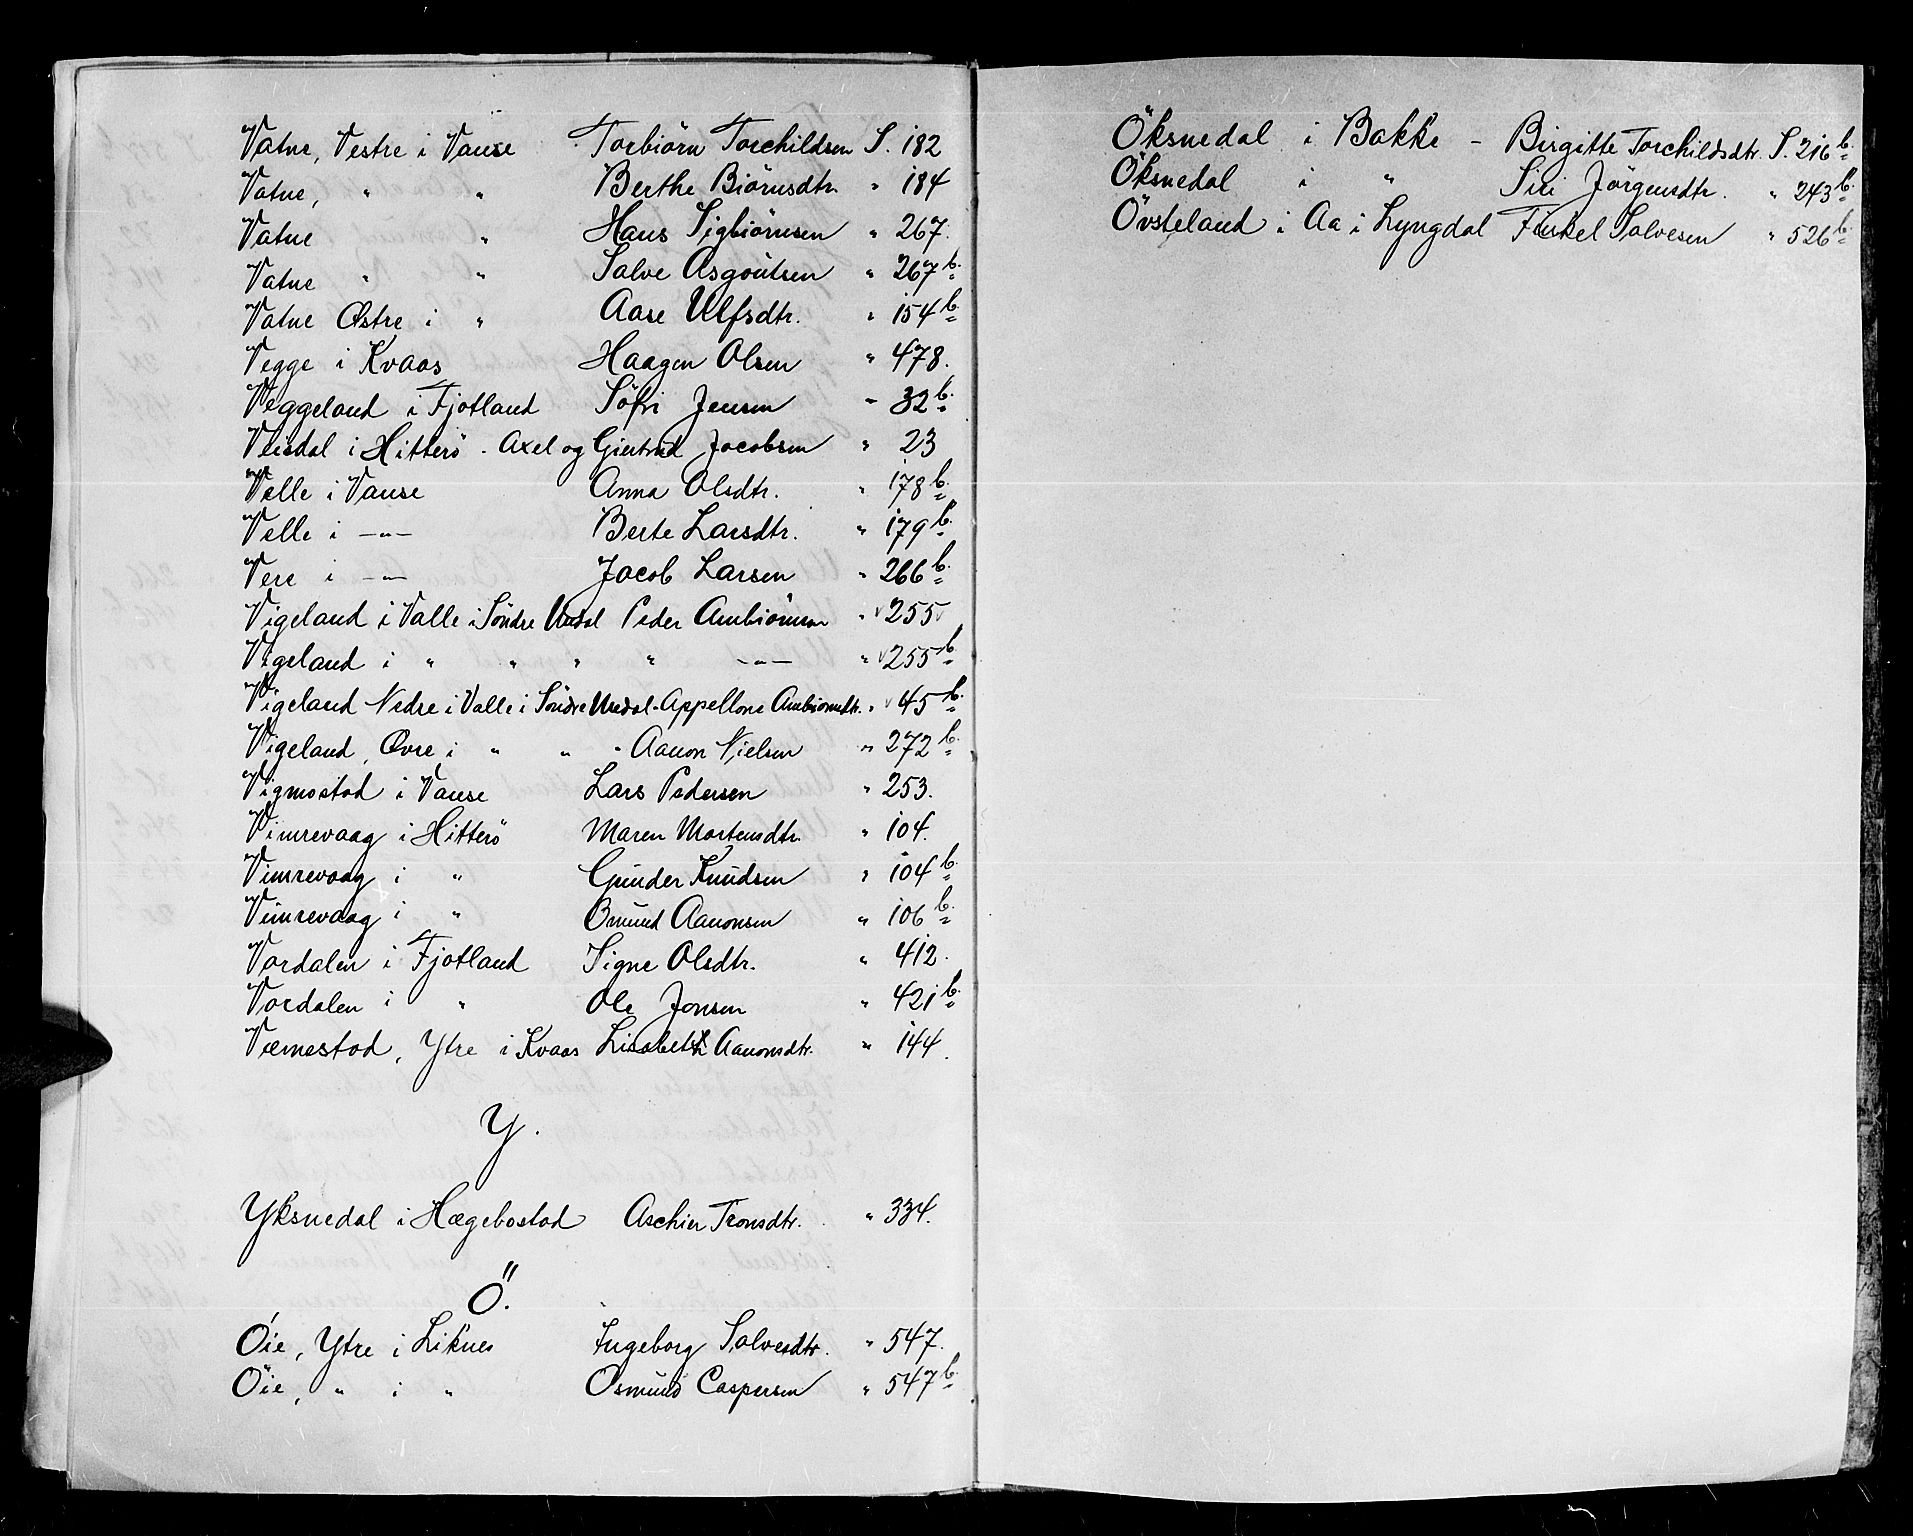 Vatne, Vestre i Vanse Torbiörn Torchildsen S. 182
Vatne, " " Berthe Biörnsdtr. " 184
Vatne " Hans Sigbiörnsen " 267.
Vatne " " Salve Asgoutsen " 267 b.
Vatne Østre i " Aase Ulfsdtr. " 154 b.
Vegge i Kvaas Haagen Olsen " 478.
Veggeland i Fjotland Söfri Jensen " 32 b.
Veisdal i Hitterö - Axel og Giertrud Jacobsen " 23
Velle i Vanse Anna Olsdtr. " 178 b.
Velle i -"- Berte Larsdtr. " 179 b.
Vere i -"- Jacob Larsen " 266 b.
Vigeland i Valle i Söndre Undal Peder Ambiörnsen " 255
Vigeland i " " " " -"- " 255 b
Vigeland Nedre i Valle i Söndre Undal - Appellone Ambiörnsdtr. " 45 b.
Vigeland, Øvre i " " " Aanon Nielsen " 272 b.
Vigmostad i Vanse Lars Pedersen " 253.
Vimrevaag i Hitterö Maren Mortensdtr. " 104.
Vimrevaag i " Gunder Knudsen " 104 b.
Vimrevaag i " Omund Aanonsen " 106 b.
Vordalen i Fjotland Signe Olsdtr. " 412.
Vordalen i " Ole Jonsen " 421 b.
Værnestad, Ytre i Kvaas Lisabeth Aanonsdtr. " 144.
Y.
Yksnedal i Hægebostad Aschier Tronsdtr. " 334.
Ö.
Öie, Ytre i Liknes Ingeborg Salvesdtr. " 547.
Öie, " i " Osmund Caspersen " 547 b.
Öksnedal i Bakke - Birgitte Torchildsdtr. S. 216 b.
Öksnedal i " Siri Jörgensdtr. " 243 b.
Övsteland i Aa i Lyngdal Salvesen " 526 b.